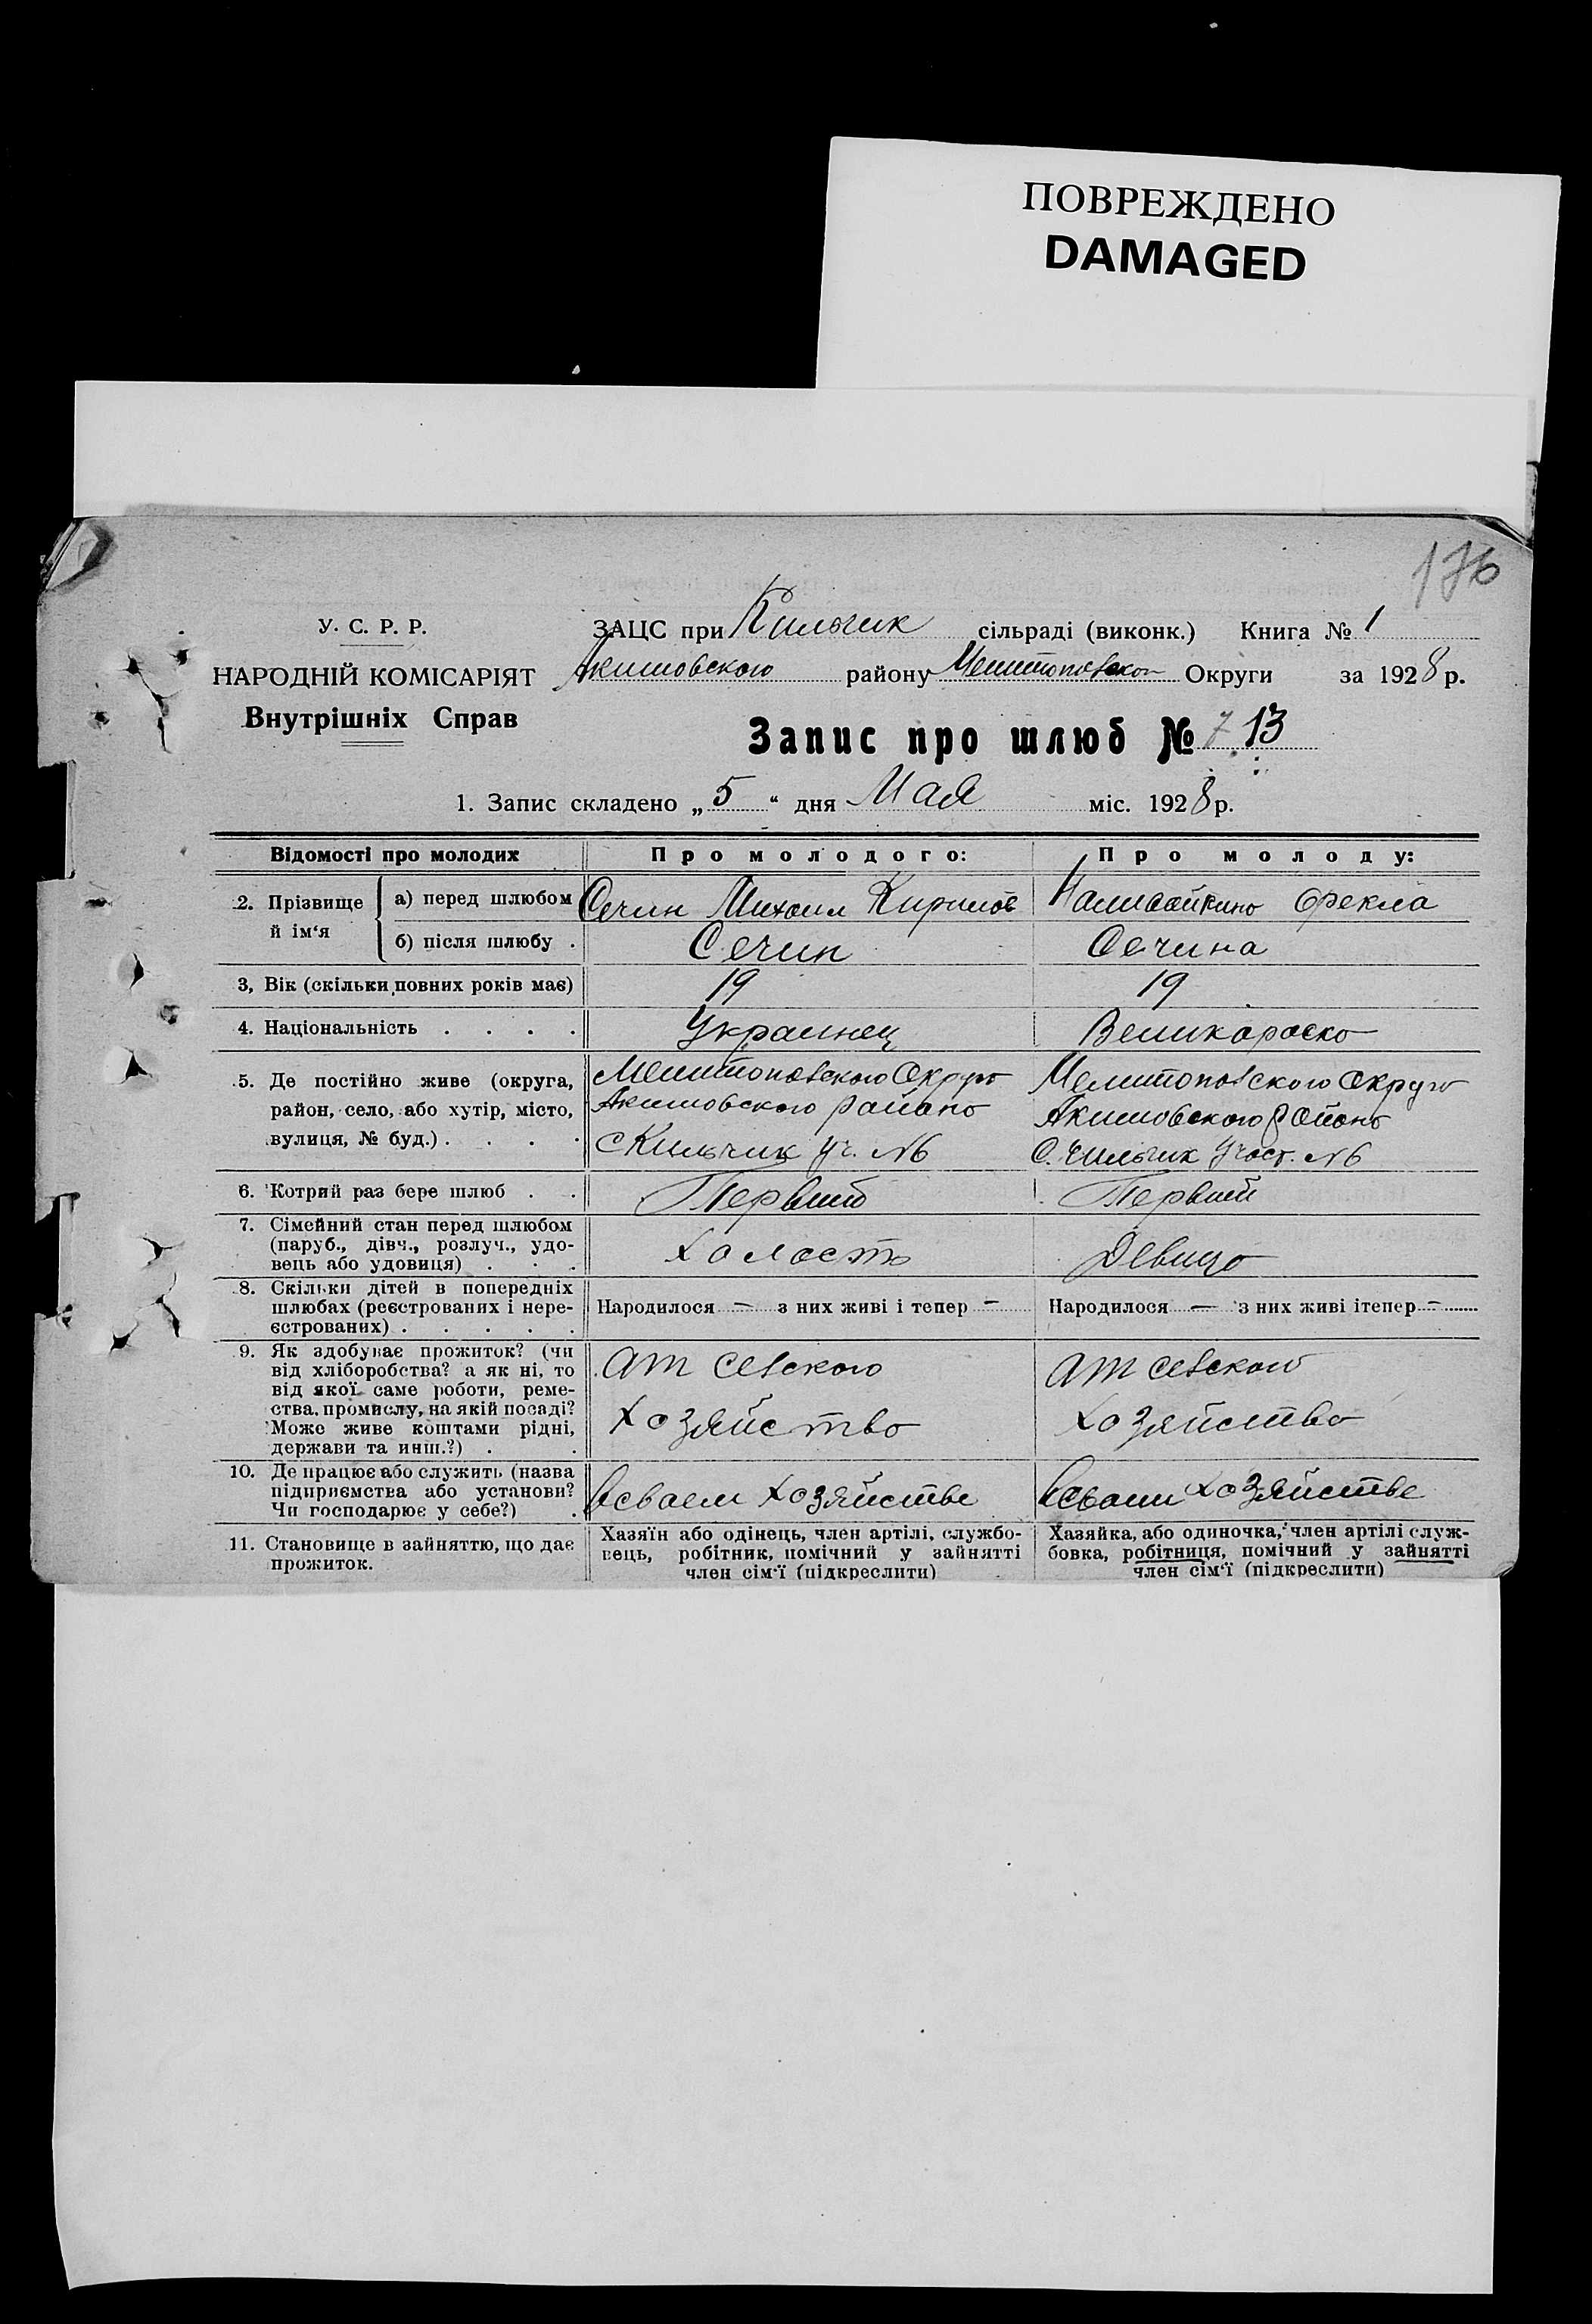 ПОВРЕЖДЕНО
DAMAGED
176
У. С. Р. Р.
НАРОДНІЙ КОМІСАРІЯТ
Внутрішніх Справ
ЗАЦС при Кильчик сільраді (виконк.) Книга № 1
Акимовского району Мелитопольской Округи за 1928 р.
Запис про шлюб № 7 13
1. Запис складено „5“ дня Мая міс. 1928 р.
Відомості про молодих Про молодого: Про молоду:
2. Прізвище й ім‘я
а) перед шлюбом Сечин Михаил Кирилов Фекла
б) після шлюбу . Сечин Сечина
3, Вік (скільки повних років має) 19 19
4. Національність . . . . Украинец Великороско
5. Де постійно живе (округа, Мелитопольского Округо Мелитопольского Округо
район, село, або хутір, місто, Акимовского району Акимовского Району
вулиця, № буд.) . . . . с Кильчик уч. №6 С. Кильчик Участ. №6
6. Котрий раз бере шлюб . . Первый Первый
7. Сімейний стан перед шлюбом
(паруб., дівч., розлуч., удо-
вець або удовиця) . . . Холость Девицо
8. Скільки дітей в попередніх
шлюбах (реєстрованих і нере-
єстрованих) . . . . . Народилося — з них живі і тепер — Народилося — з них живі ітепер —
9. Як здобуває прожиток? (чи
від хліборобства? а як ні, то
від якої саме роботи, реме-
ства, промислу, на якій посаді?
Може живе коштами рідні,
держави та инш.?) . .
ат сельского ат сельского
хозяйство хозяйство
10. Де працює або служить (назва
підприємства або установи?
Чи господарює у себе?) .
всваем хозяйстве всваем хозяйстве
11. Становище в зайняттю, що дає
прожиток.
Хазяїн або одінець, член артілі, службо-
вець, робітник, помічний у зайнятті
член сім‘ї (підкреслити)
Хазяйка, або одиночка, член артілі служ-
бовка, робітниця, помічний у зайнятті
член сім‘ї (підкреслити)